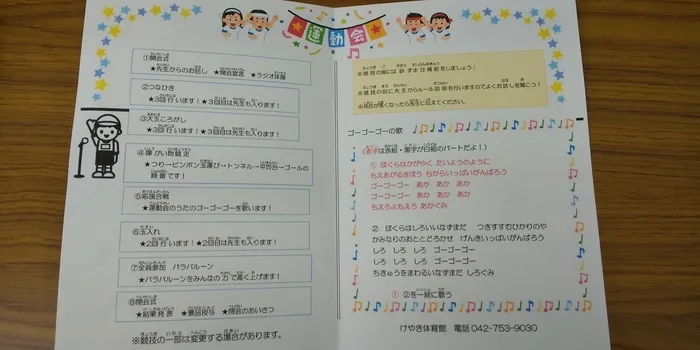 運動会
①開会式
★先生からのお話し ★開会宣言 ★ラジオ体操
②つなひき
★3回行います!★3回目は先生も入ります!
③大玉ころがし
★3回行います!★3回目は先生も入ります!
④障がい物競走
★つり→ピンポン玉運び→トンネル→平均台→ゴールの
順番です!
⑤応援合戦
★運動会のうたのゴーゴーゴーを歌います!
⑥玉入れ
★2回行います!★2回目は先生も入ります!
⑦全員参加 パラバルーン
★パラバルーンをみんなの力で高く上げます!
⑧閉会式
★結果発表 ★賞品授与 ★閉会のあいさつ
※競技の一部は変更する場合があります。
※競技の後には必ず水分補給をしましょう!
※競技の前に先生からルール説明を行いますのでよくお話しを聞こう!
※具合が悪くなったら先生に伝えてください。
ゴーゴーゴーの歌
(赤字は赤組・黒字が白組のパートだよ!)
① ぼくらはかがやく たいようのように
もえあがるきぼう ちからいっぱいがんばろう
ゴーゴーゴー あか あか あか
ゴーゴーゴー あか あか あか
もえろよもえろ あかぐみ
② ぼくらはしろいいなずまだ つきすすむひかりのや
かみなりのおととどろかせ げんきいっぱいがんばろう
しろ しろ しろ ゴーゴーゴー
しろ しろ しろ ゴーゴーゴー
ちきゅうをまわるいなずまだ しろぐみ
① ②を一緒に歌う
けやき体育館 電話 042-753-9030